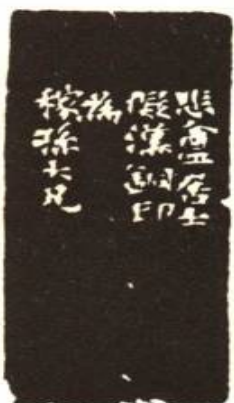 悲盦居士
擬漢銅印
為
稼孫大兄